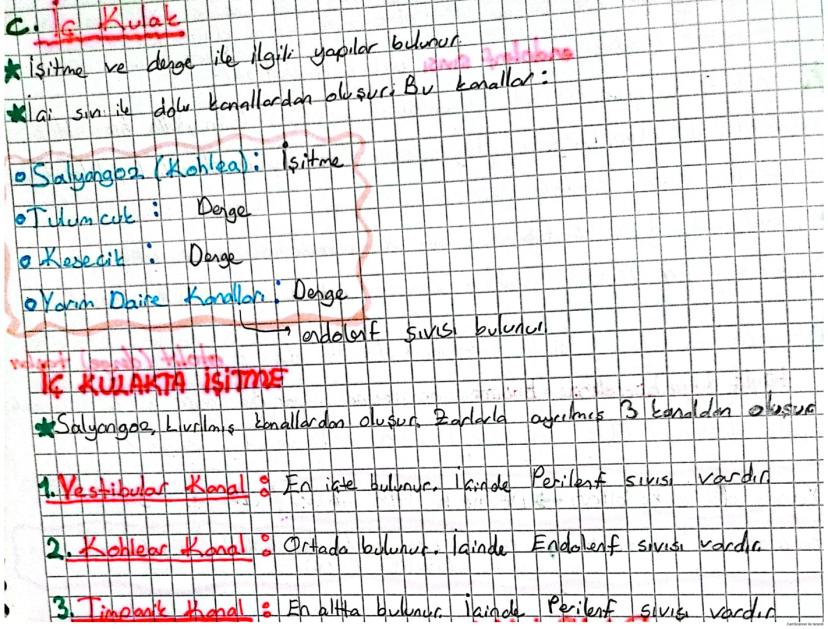 C. İç Kulak
★ İşitme ve denge ile ilgili yapılar bulunur.
★ İçi sıvı ile dolu kanallardan oluşur. Bu kanallar:
• Salyangoz (Kohlea): İşitme
• Tulumcuk : Denge
• Kesecik : Denge
• Yarım Daire Kanalları: Denge
→ endolenf sıvısı bulunur.
İÇ KULAKTA İŞİTME
★ Salyangoz, kıvrılmış kanallardan oluşur. Zarlarla ayrılmış 3 kanaldan oluşur
1. Vestibular Kanal : En içte bulunur. İçinde Perilenf sıvısı vardır.
2. Kohlear Kanal : Ortada bulunur. İçinde Endolenf sıvısı vardır.
3. Timpanik Kanal : En altta bulunur. İçinde Perilenf sıvısı vardır